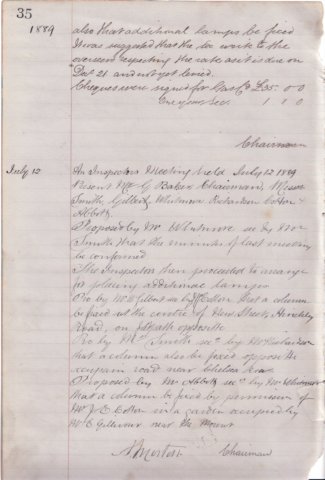 35
1889
also that additional lamps be fixed
It was suggested that the Sec write to the
overseers respecting the rate as it is due on
21 and not yet levied.
Cheques were signed for Gas Co £35. 0 0
Sec. 1 1 0
Chairman
July 12
An Inspectors Meeting held July 12 1889
Present Mr G Baker Chairman, Messrs
Smith, Gilbert, Whitmore Richardson Cotton &
Abbott
Proposed by Mr Whitmore sec by Mr
Smith that the minutes of last meeting
be confirmed
The Inspectors then proceeded to arrange
for placing additional lamps
Pro by Mr Gilbert sec by Mr Cotton that a column
be fixed at the centre of New Street, Hinckley
Road, on footpath opposite
Pro by Mr Smith sec by Mr Richardson
that a column also be fixed opposite the
road near Chelsea Row
Proposed by Mr Abbott sec by Mr Whitmore
that a column be fixed by permission of
Mr J. E. Cotton in a garden occupied by
Mr E near the Mount
Chairman